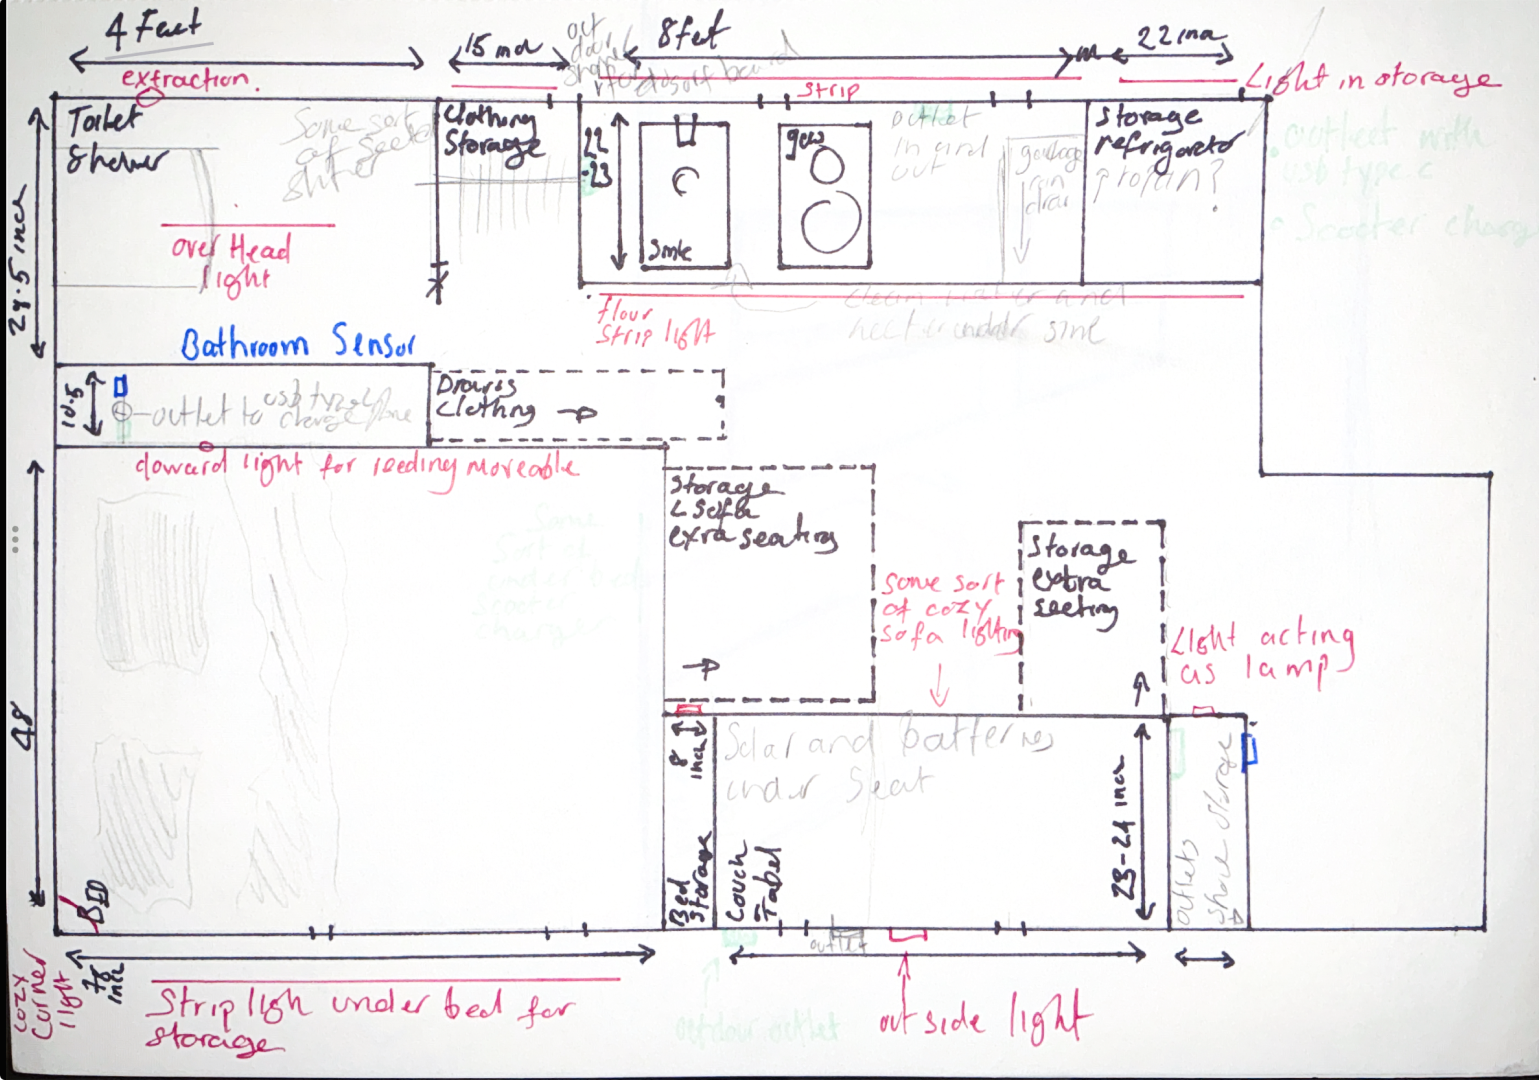 4 Feet
15 inch
8 feet
22 inch
extraction.
strip
Light in storage
Toilet
Shower
Some sort
of
Clothing
Storage
22
-23
Sink
gas
outlet
in and
out
garbage
Storage
refrigerator
propan?
outleet with
usb type c
Scooter charg
29.5 inch
over Head
light
flour
strip light
clean water and
under sink
Bathroom Sensor
10.5
outlet to
usb type c
charge phone
Drawrs
clothing
doward light for reeding moveable
Storage
L sofa
extra seating
Storage
extra
seeting
some sort
of cozy
sofa lighting
Light acting
as lamp
Some
Sort of
under bed
Scooter
charger
48
8
inch
Solar and batteries
under Seat
23-24 inch
Bed
Storage
Couch
Tabel
outlets
shoe storage
BED
outlet
cozy
corner
light
78
inch
Strip ligh under bed for
storage
out side light
outdoor outlet